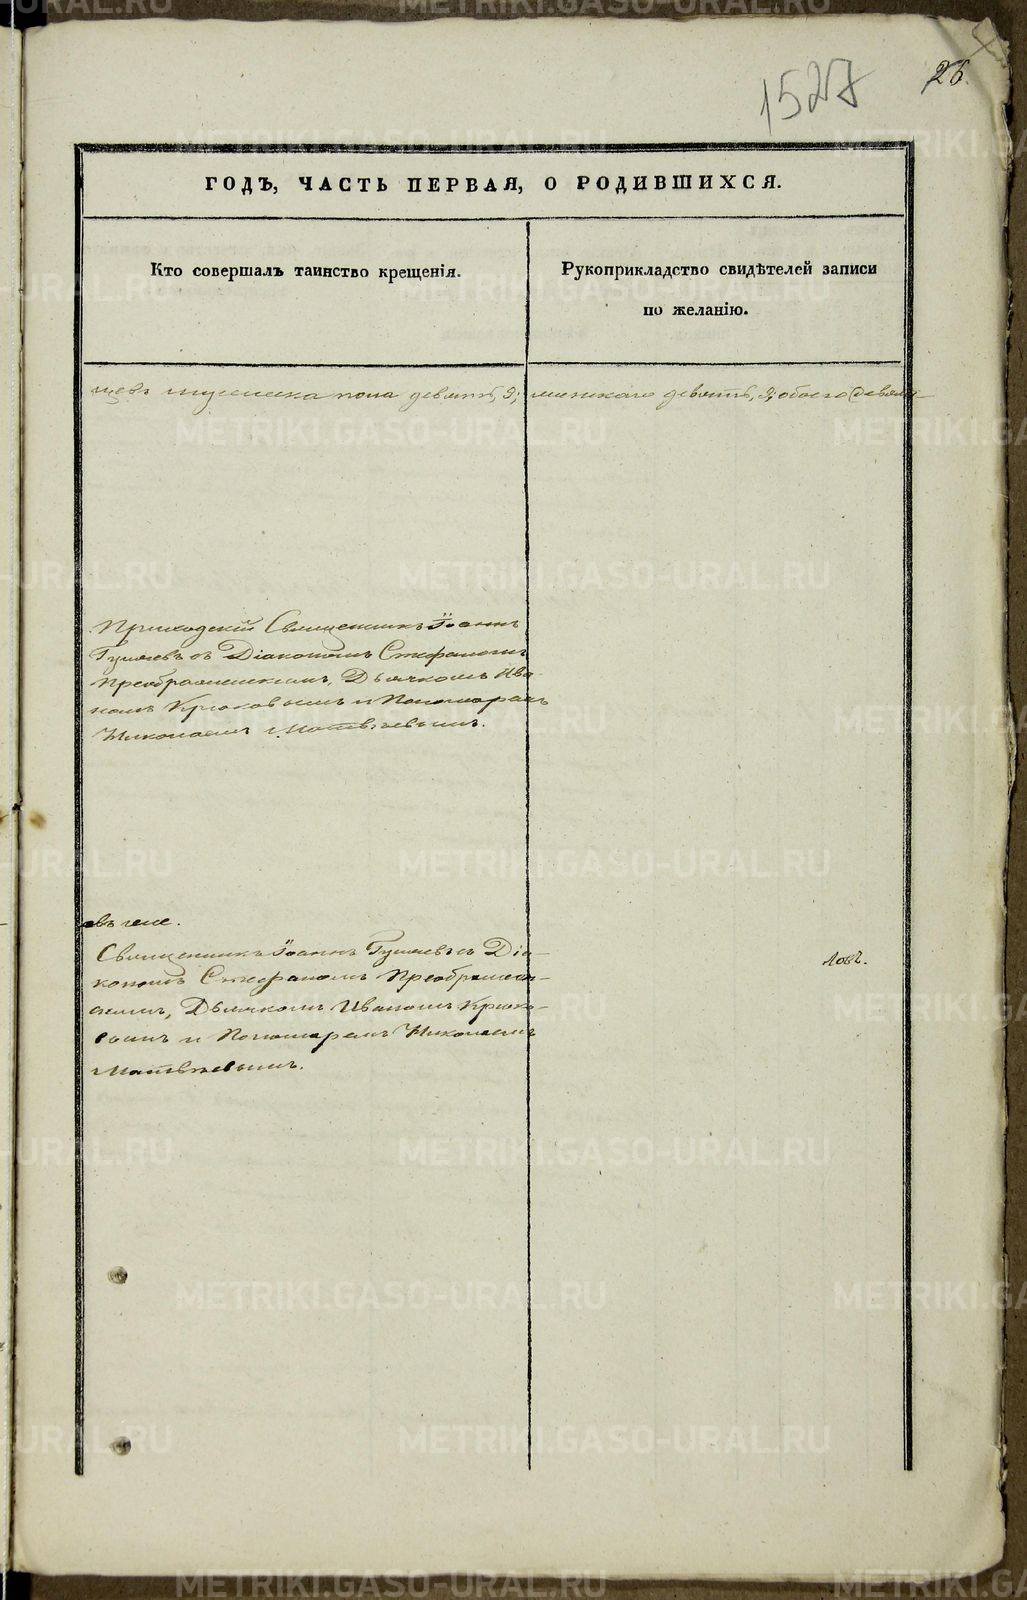 1527
26.
ГОДЪ, ЧАСТЬ ПЕРВАЯ, О РОДИВШИХСЯ.
Кто совершалъ таинство крещенія.
Рукоприкладство свидѣтелей записи
по желанію.
мужеска пола девять, 9; женскаго девять, 9; обоего
Приходскій Священникъ Іоаннъ
съ Діакономъ Стефаномъ
Преображенскимъ, Дьячкомъ Ива-
номъ Крюковымъ и Пономаремъ
Николаемъ Матвѣевымъ.
Священникъ Іоаннъ съ Діа-
кономъ Стефаномъ Преображен-
скимъ, Дьячкомъ Иваномъ Крюко-
вымъ и Пономаремъ Николаемъ
Матвѣевымъ.
METRIKI.GASO-URAL.RU